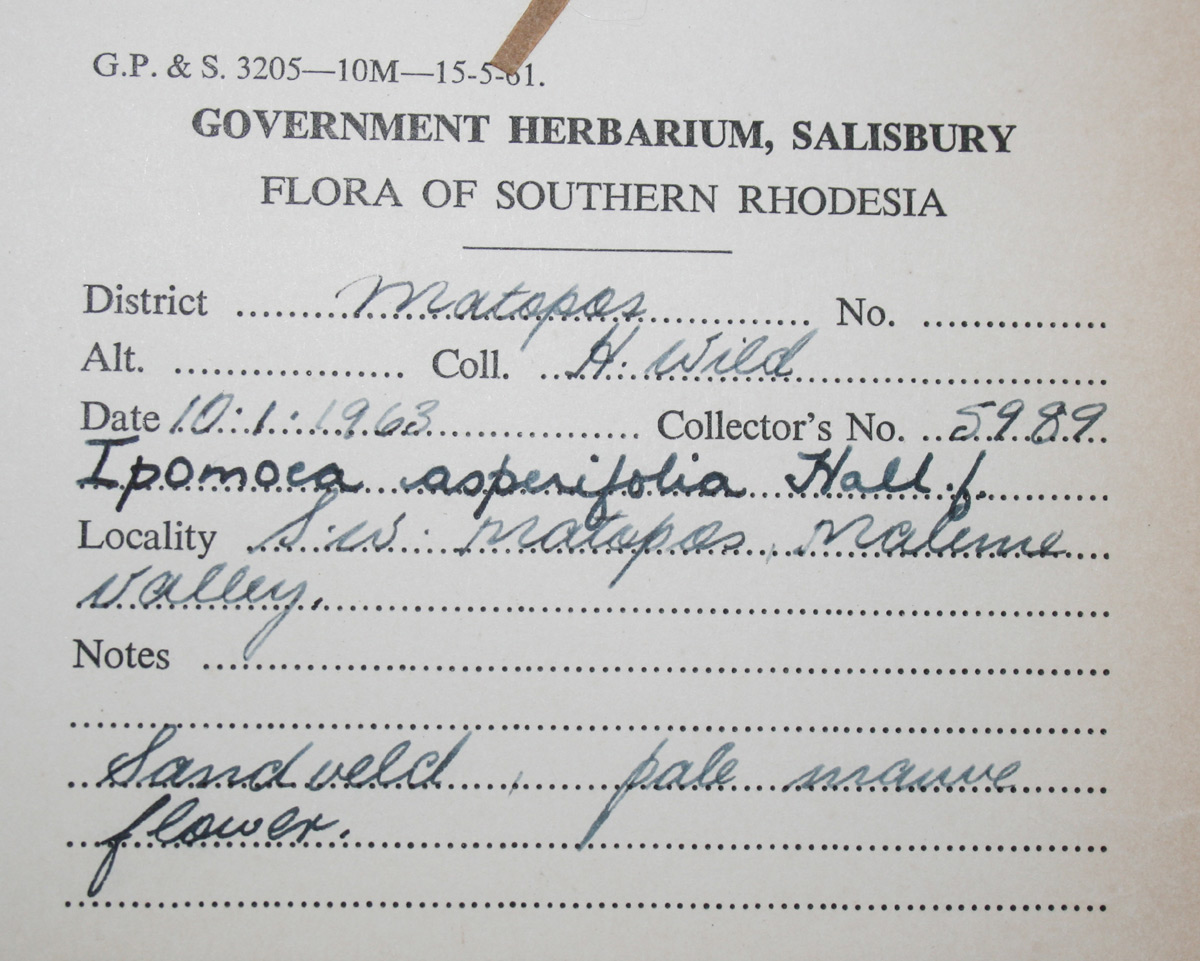 G.P. & S. 3205—10M—15-5-61.
GOVERNMENT HERBARIUM, SALISBURY
FLORA OF SOUTHERN RHODESIA
District Matopos No.
Alt. Coll. H. Wild
Date 10.1.1963 Collector's No. 5989
Ipomoea asperifolia Hall.f.
Locality S.W. Matopos, Maleme
Valley.
Notes
Sandveld, pale mauve
flower.